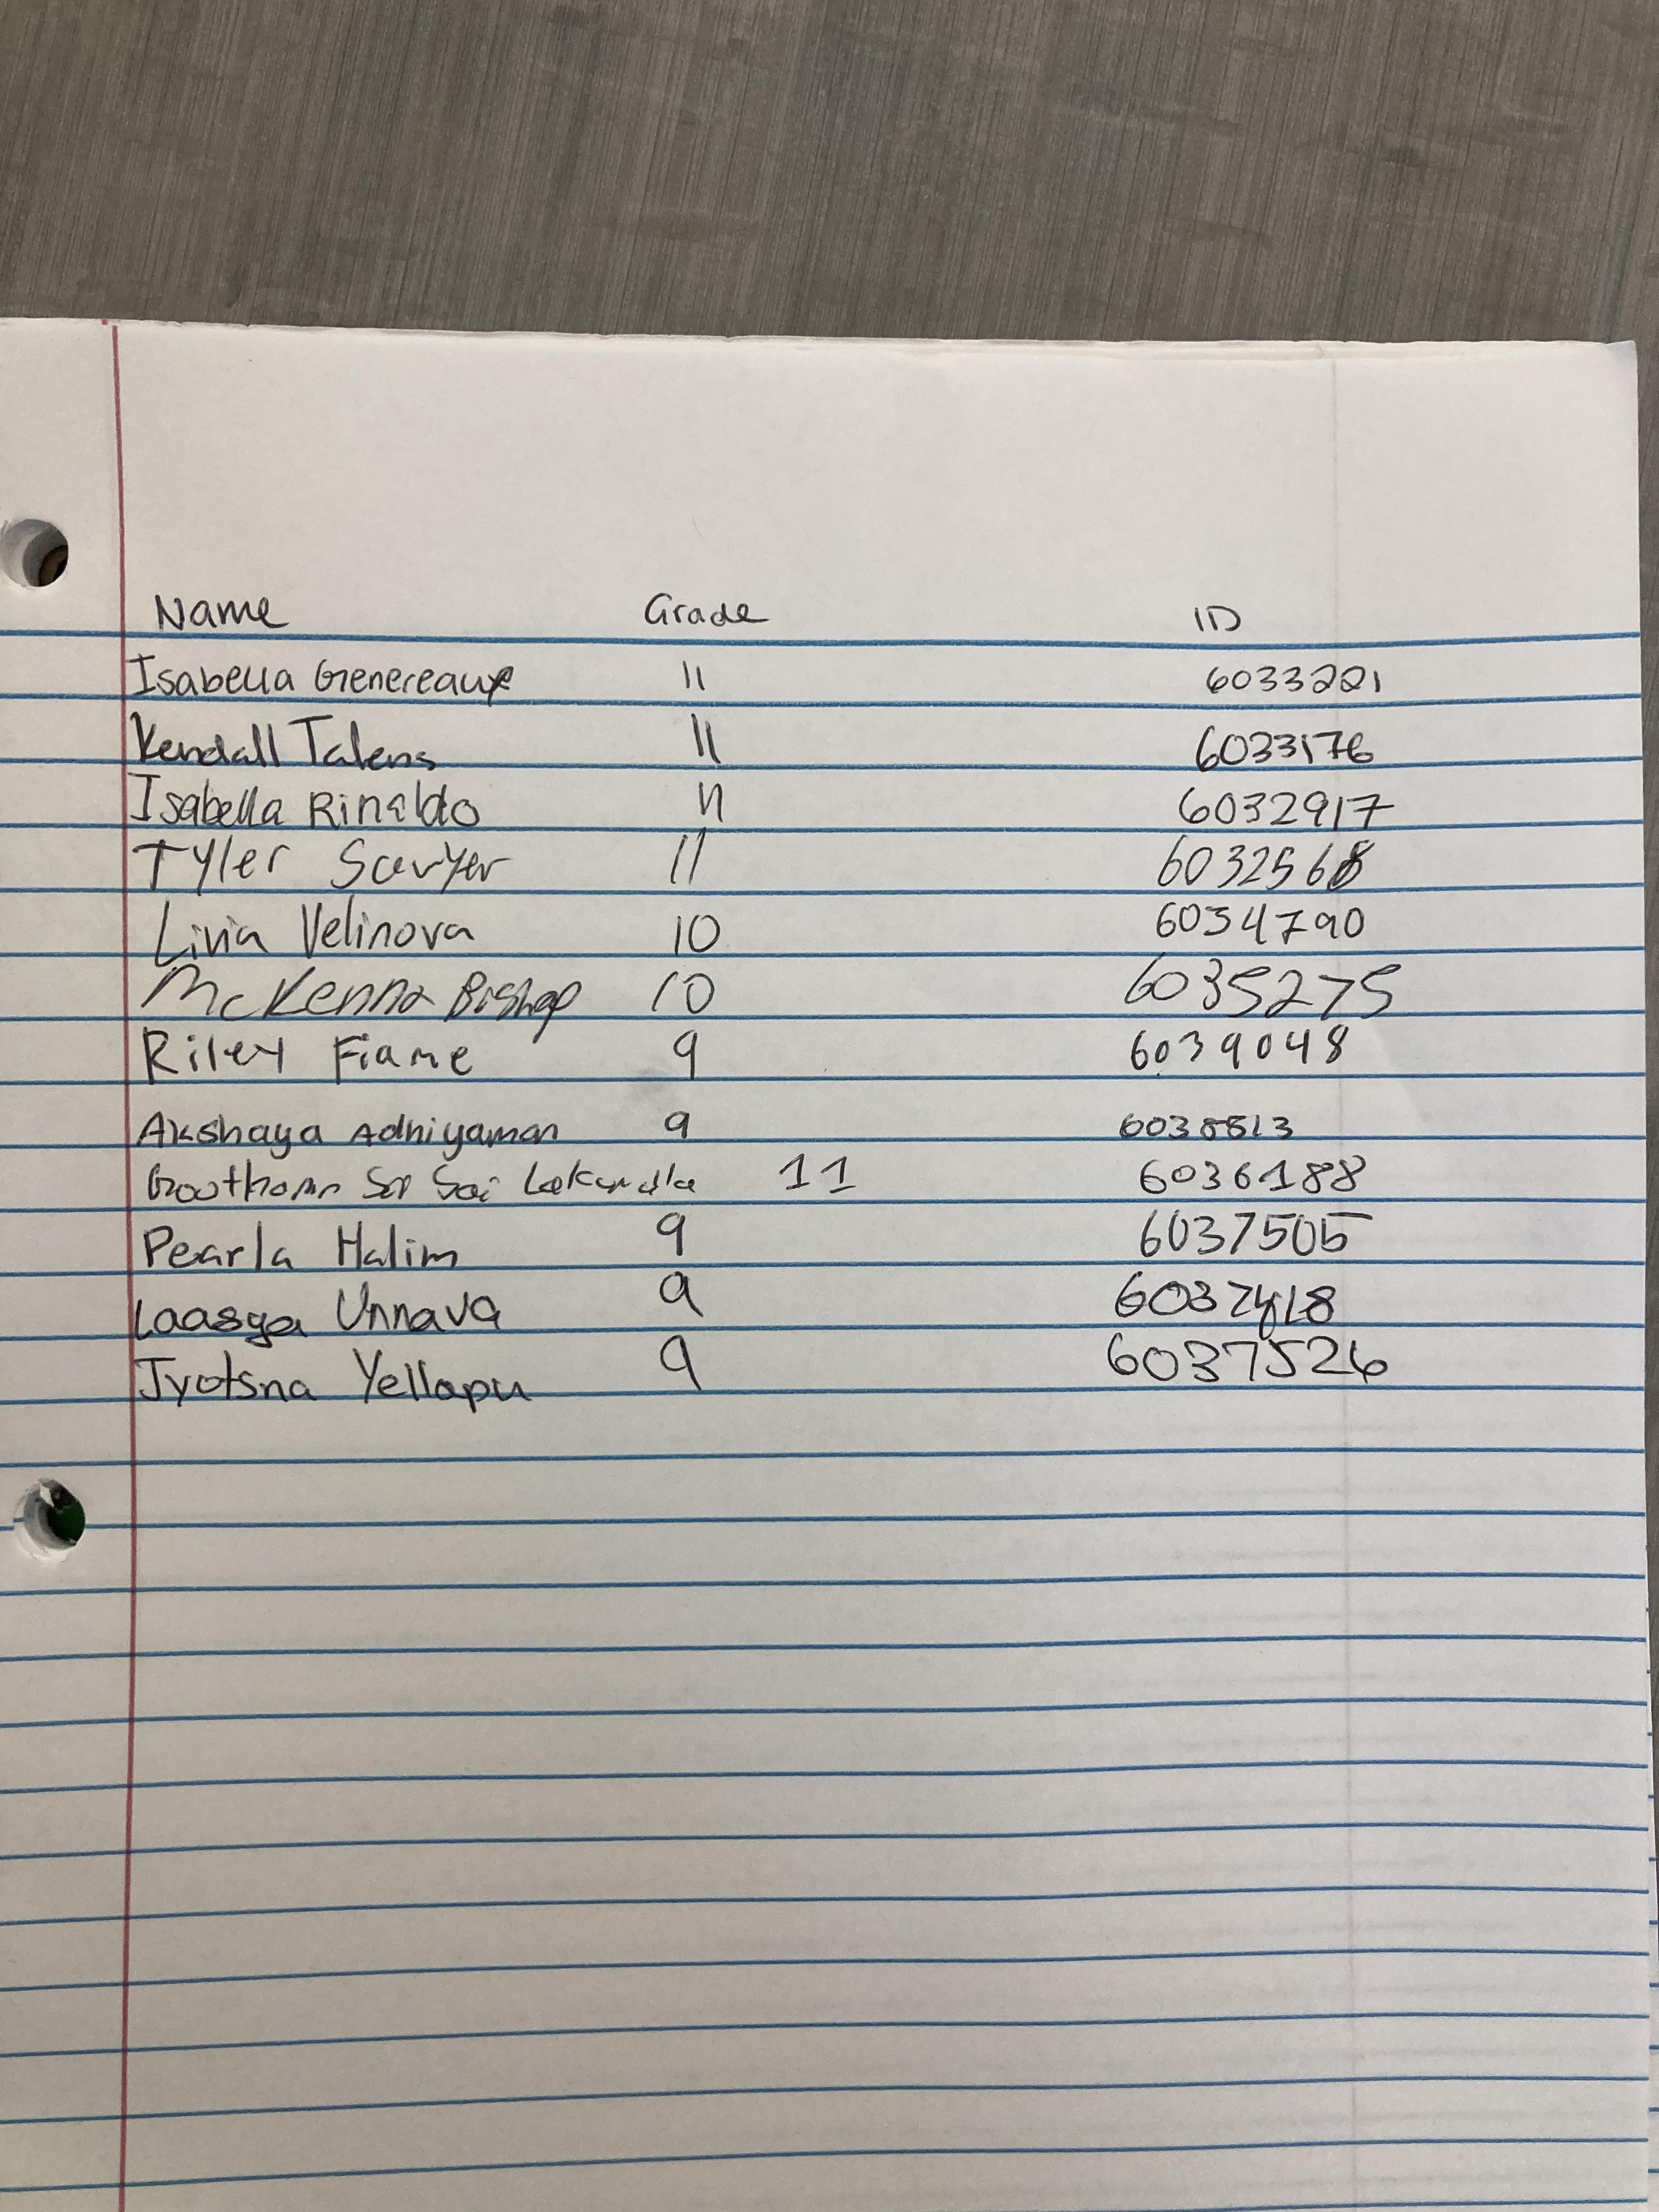 Name Grade ID
Isabella Genereaux 11 6033221
Kendall Talens 11 6033176
Isabella Rinaldo 11 6032917
Tyler Sawyer 11 6032568
Livia Velinova 10 6034790
McKenna Bishop 10 6035275
Riley Fiame 9 6039048
Akshaya Adhiyaman 9
Sai 11 6036188
Pearla Halim 9 6037505
Laasya Unnava 9
Jyotsna Yellapu 9 6037526